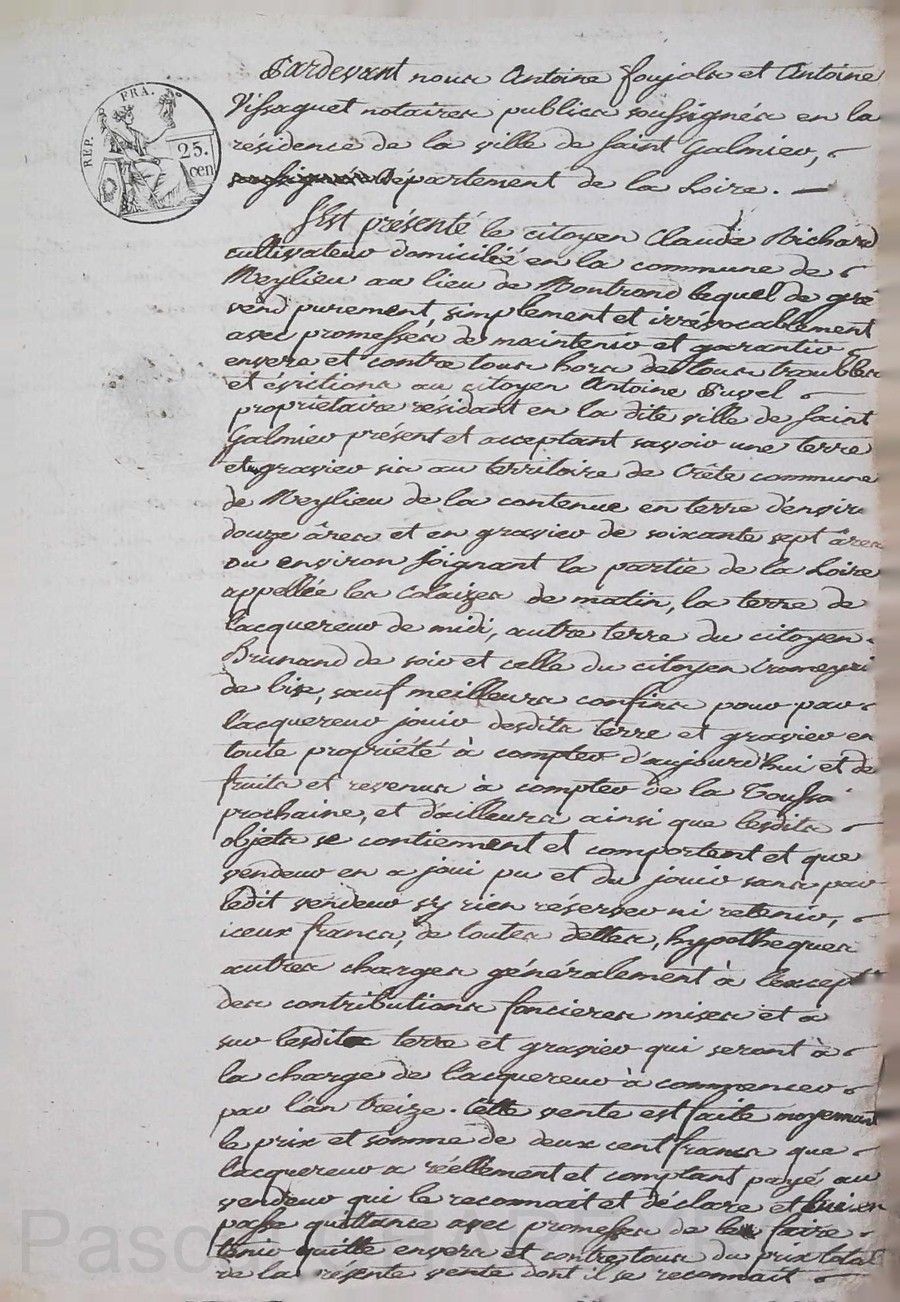 REP. FRA. No
25.
cen
Pardevant nous Antoine foujols et Antoine
Vissaguet notaires publics soussignés en la
résidence de la ville de Saint Galmier,
département de la Loire.
S'Est présenté le citoyen Claude Richard
cultivateur domicilié en la commune de
Meylieu au lieu de Montrond lequel de gré
vend purement, simplement et irrévocablement
avec promesses de maintenir et garantir
envers et contre tous hors de tous troubles
et évictions au citoyen Antoine Puvel
propriétaire résidant en la dite ville de Saint
Galmier présent et acceptant savoir une terre
et gravier sis au territoire de Crête commune
de Meylieu de la contenue en terre d'envir
douze âres et en gravier de soixante sept âres
ou environ joignant la partie de la Loire
appellée les Calaizes de matin, la terre de
lacquereur de midi, autre terre du citoyen
Brunand de soir et celle du citoyen
de bise, sauf meilleurs confins pour par
l'acquereur jouir desdits terre et gravier en
toute propriété à compter d'aujourd'hui et de
fruits et revenus à compter de la Toussa
prochaine, et d'ailleurs ainsi que lesdits
objets se contiennent et comportent et que
vendeur en a joui pu et du jouir sans par
ledit vendeur s'y rien réserver ni retenir,
iceux francs, de toutes dettes, hypotheques
autres charges généralement à l'except
des contributions foncieres mises et a
sur lesdits terre et gravier qui seront à
la charge de l'acquereur à commencer
par l'an treize. Cette vente est faite moyennant
le prix et somme de deux cent francs que
l'acquereur a réellement et comptant payé au
vendeur qui le reconnait et déclare et lui en
passe quittance avec promesse de faire
tenir quitte envers et contre tous du prix total
de la présente vente dont il se reconnait